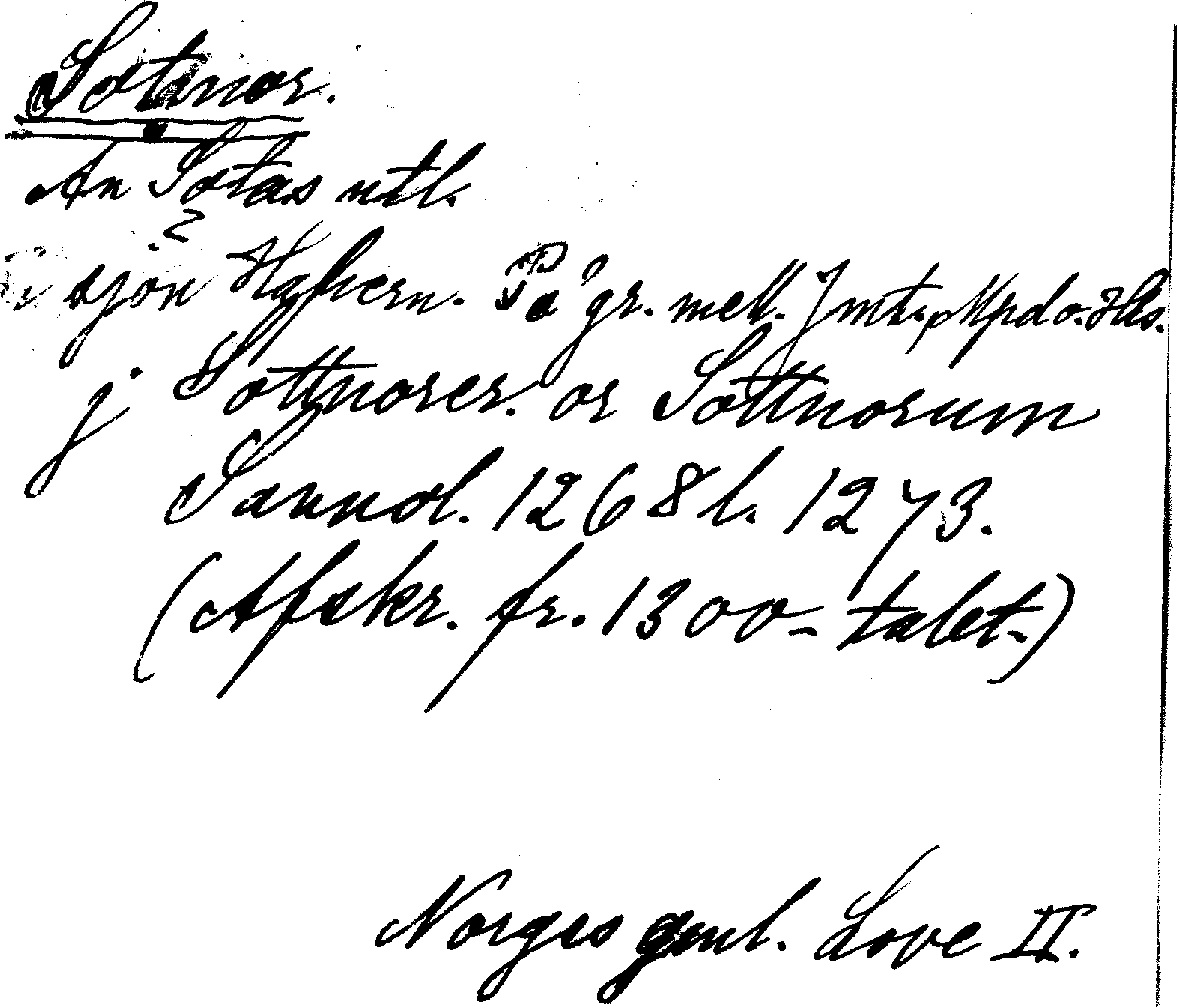 Sotnor.
Ån Sotas utl.
?
i sjön Hafvern. På gr. mell. Jmt., Mpd o. Hls.
j Sottnorer. or Sottnorum
Sannol. 1268 l. 1273.
(Afskr. fr. 1300-talet.)
Norges gml. Love II.